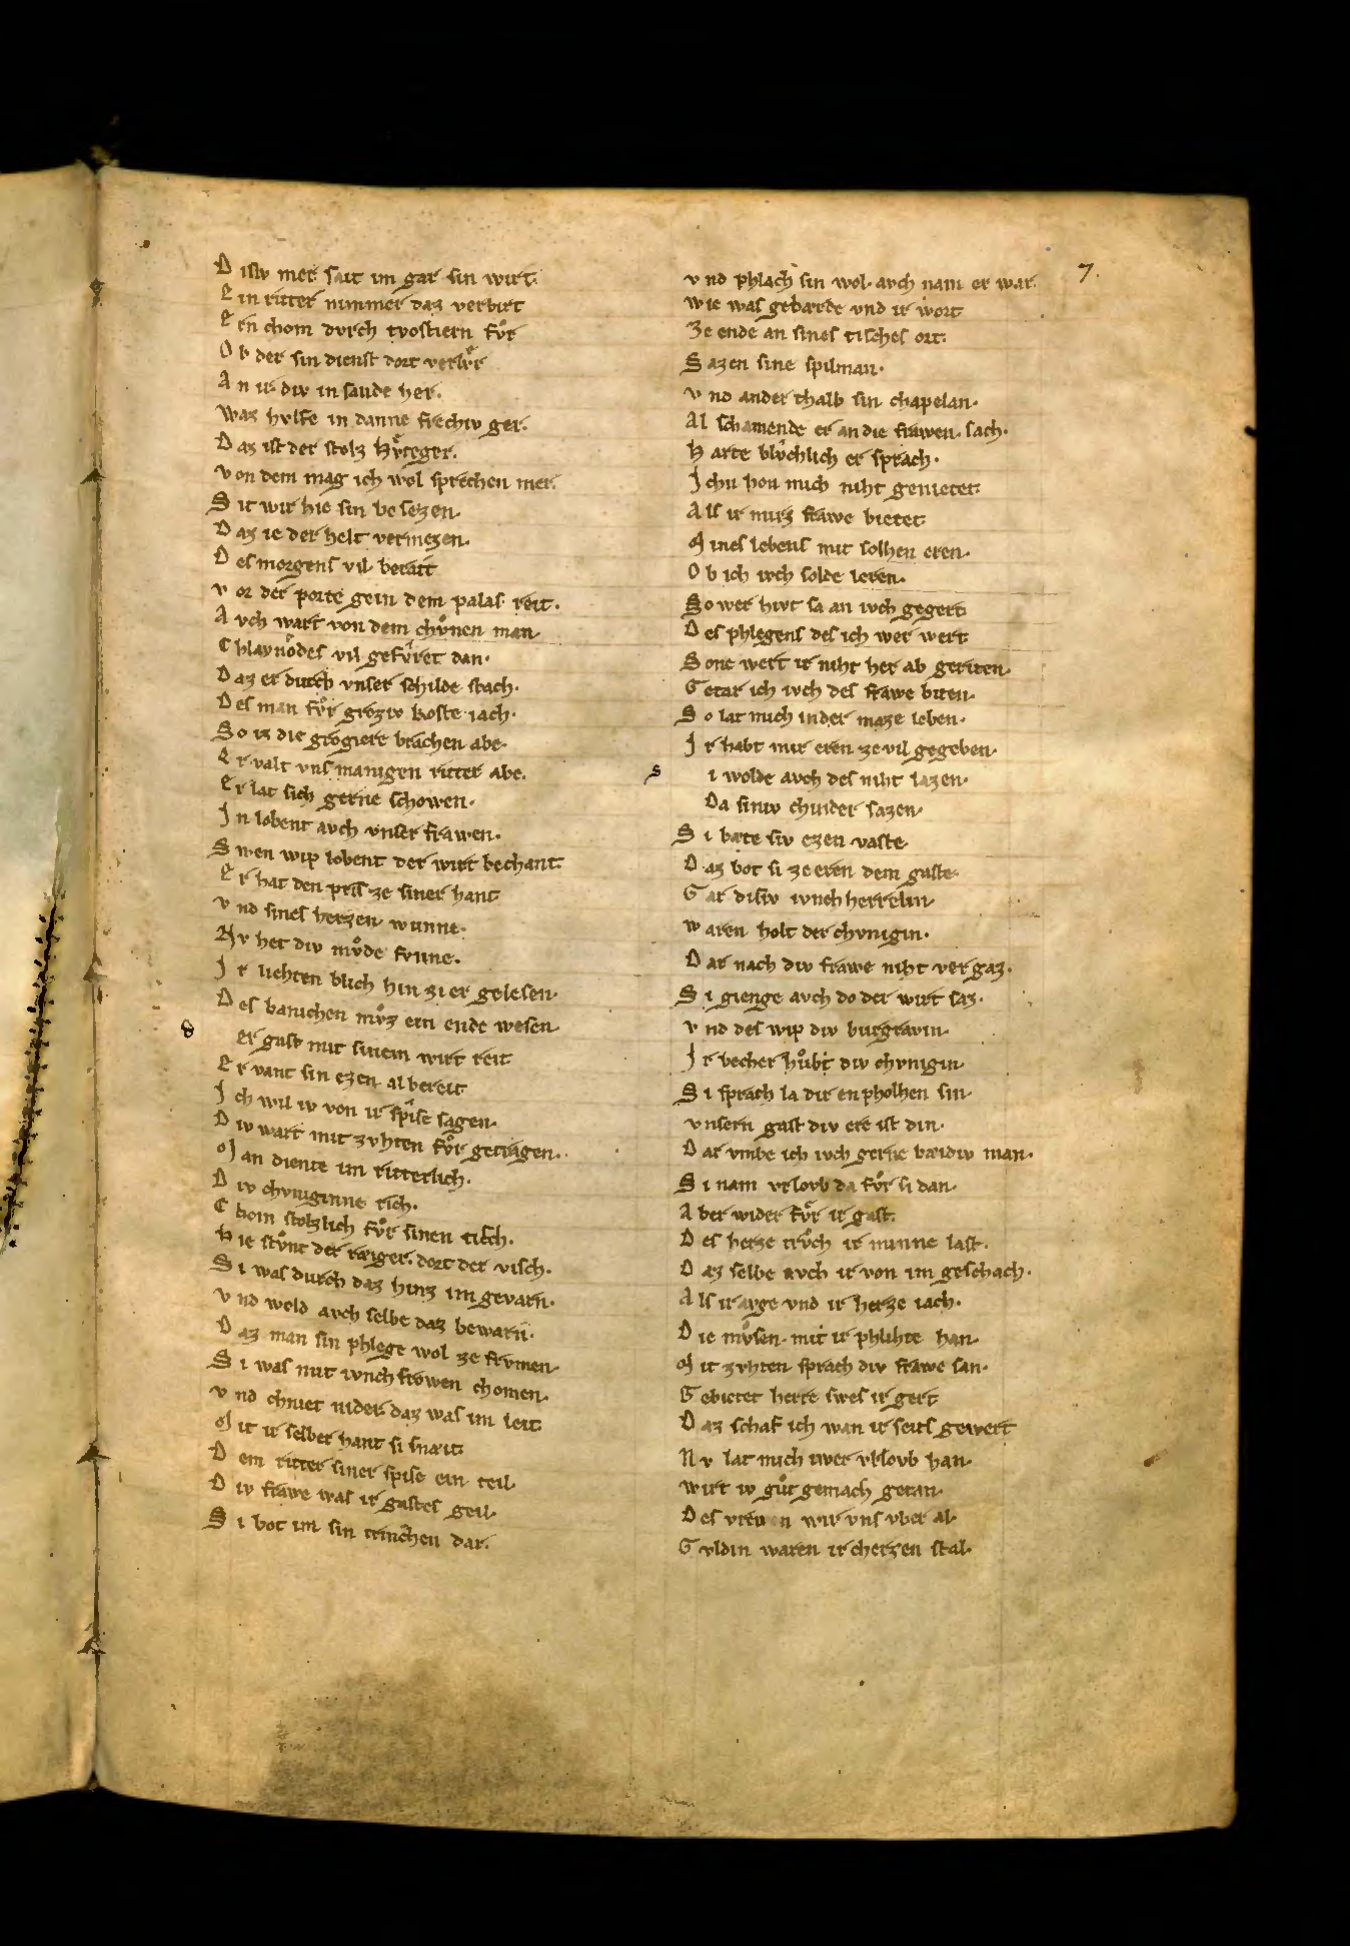 7.
D isiv mer sait im gar sin wirt.
E in ritter nimmer daz verbirt
E rn chom dvrch tvostiern fvͦr
O b der sin dienst dort verlvͤr
A n ir div in sande her.
Waz hvlfe in danne frechiv ger.
D az ist der stolz Hvͤteger.
V on dem mag ich wol sprechen mer.
S it wir hie sin be sezen.
D az ie der helt vermezen.
D es morgens vil berait
V or der porte gein dem palas reit.
A vch wart von dem chvͦnen man
C hlaynodes vil gefvͤret dan.
D az er dvrch vnser schilde stach.
D es man fvͦr groziv koste iach.
So iz die grogiere brachen abe.
E r valt vns manigen ritter abe.
E r lat sich gerne schowen.
J n lobent avch vnser frawen.
S wen wip lobent der wirt bechant
E r hat den pris ze siner hant
V nd sines herzen wunne.
Nv het div mvͦde svnne.
J r liehten blich hin zi er gelesen.
D es banichen mvͦz ein ende wesen.
d er gast mit sinem wirt reit
E r vant sin ezen al bereit
J ch wil iv von ir spise sagen.
D iv wart mit zvhten fvͦr getragen.
M an diente im ritterlich.
D iv chvniginne rich.
C hom stolzlich fvͦr sinen tisch.
H ie stvͦnt der raiger. dort der visch.
S i was dvrch daz hinz im gevarn.
V nd wold avch selbe daz bewarn.
D az man sin phlege wol ze frvmen.
S i was mit ivnchfrowen chomen.
V nd chniet nider daz was im leit
M it ir selber hant si snait
D em ritter siner spise ein teil.
D iv frawe was ir gastes geil.
S i bot im sin trinchen dar.
V nd phlach sin wol. avch nam er war.
Wie was gebærde vnd ir wort
Ze ende an sines tisches ort.
S azen sine spilman.
V nd ander thalb sin chapelan.
Al schamende er an die frawen. sach.
H arte blvchlich er sprach.
J chn hon mich niht genietet.
A ls ir mirz frawe bietet
M ines lebens mit solhen eren.
O b ich ivch solde leren.
So wer hivt sa an ivch gegert
D es phlegens des ich wer wert
S one wert ir niht her ab geriten.
G etar ich ivch des frawe biten.
S o lat mich in der maze leben.
J r habt mir eren ze vil gegeben.
s i wolde avch des niht lazen.
Da siniv chinder sazen.
S i bæte siv ezen vaste.
D az bot si ze eren dem gaste.
G ar disiv ivnch herrelin
W aren holt der chvnigin.
D ar nach div frawe niht vergaz.
S i gienge avch do der wirt saz.
V nd des wip div burgravin.
J r becher hvͦbt div chvnigin.
S i sprach la dir enpholhen sin.
Vnsern gast div ere ist din.
D ar vmbe ich ivch gerne bæidiv man.
S i nam vrlovb da fvͦr si dan.
A ber wider fvͤr ir gast.
D es herze trvͦch ir minne last.
D az selbe avch ir von im geschach.
A ls ir avge vnd ir herze iach.
D ie mvͦsen. mit ir phlihte han.
M it zvhten sprach div frawe san.
G ebietet herre swes ir gert
D az schaf ich wan ir seits gewert
N v lat mich iwer vrlovb han.
Wirt iv gvͦt gemach getan.
D es vreven wir vns vber al.
G vldin waren ir cherzen stal.